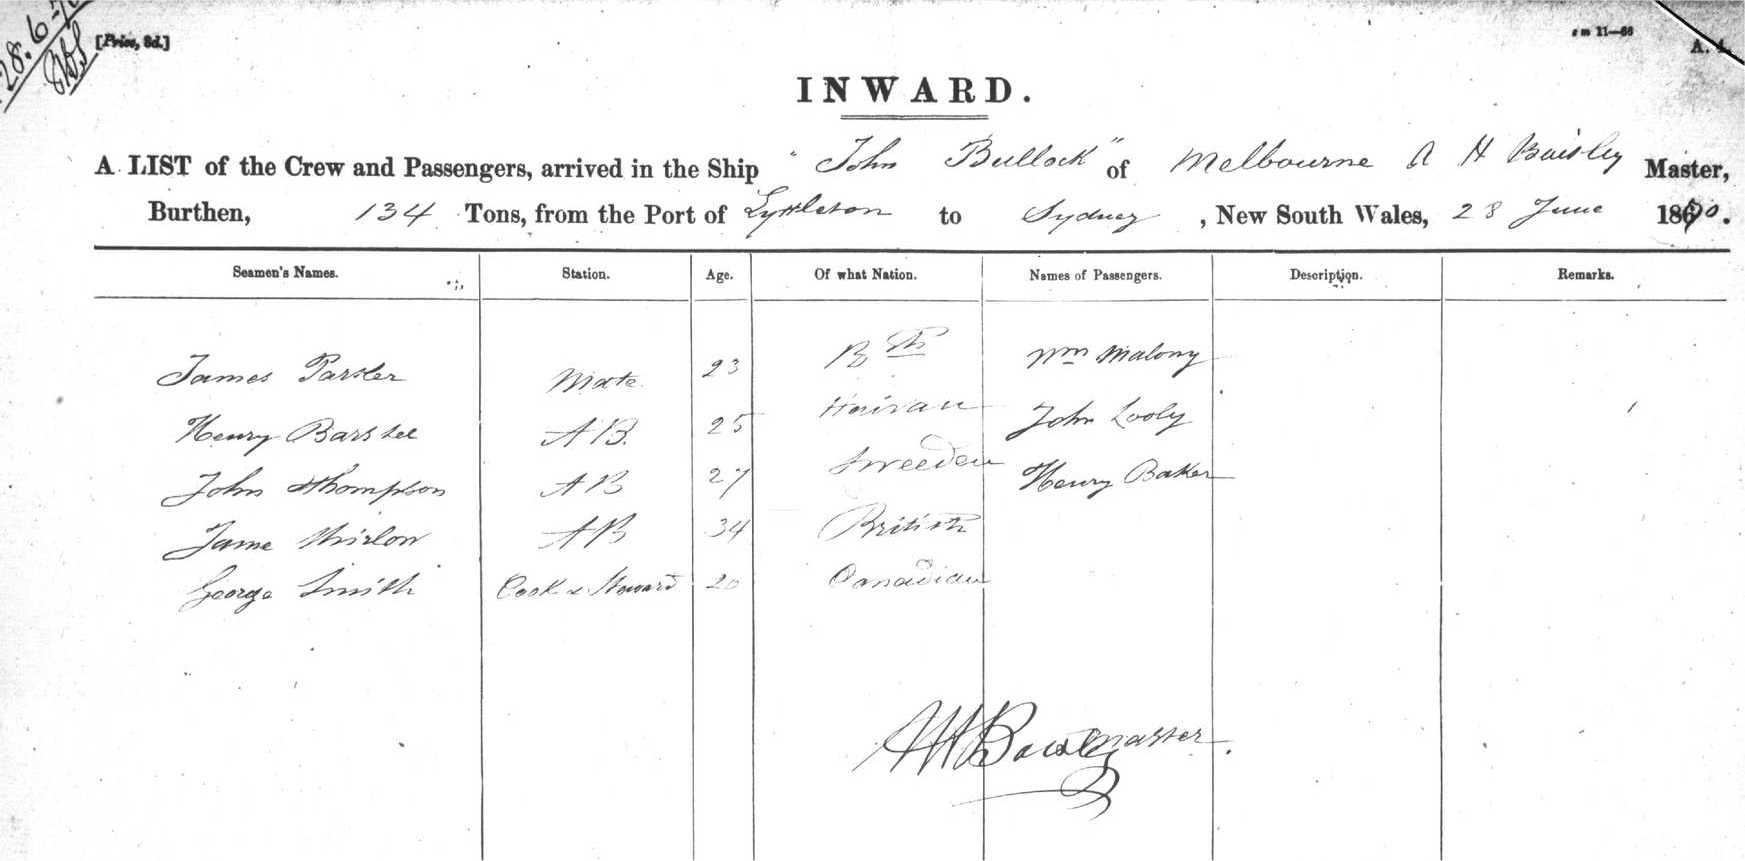 28.6.70
[Price, 3d.]
11—66
A. 1.
INWARD.
A LIST of the Crew and Passengers, arrived in the Ship "John Bullock" of Melbourne A H Baisley Master,
Burthen, 134 Tons, from the Port of Lyttleton to Sydney, New South Wales, 28 June 1870.
Seamen's Names. Station. Age. Of what Nation. Names of Passengers. Description. Remarks.
James Parsler Mate 23 B Wm Malony
Henry AB. 25 John Looly
John Thompson AB 27 Sweeden Henry Baker
Jame AB 34 British
George Smith Cook & Steward 20 Canadian
Master